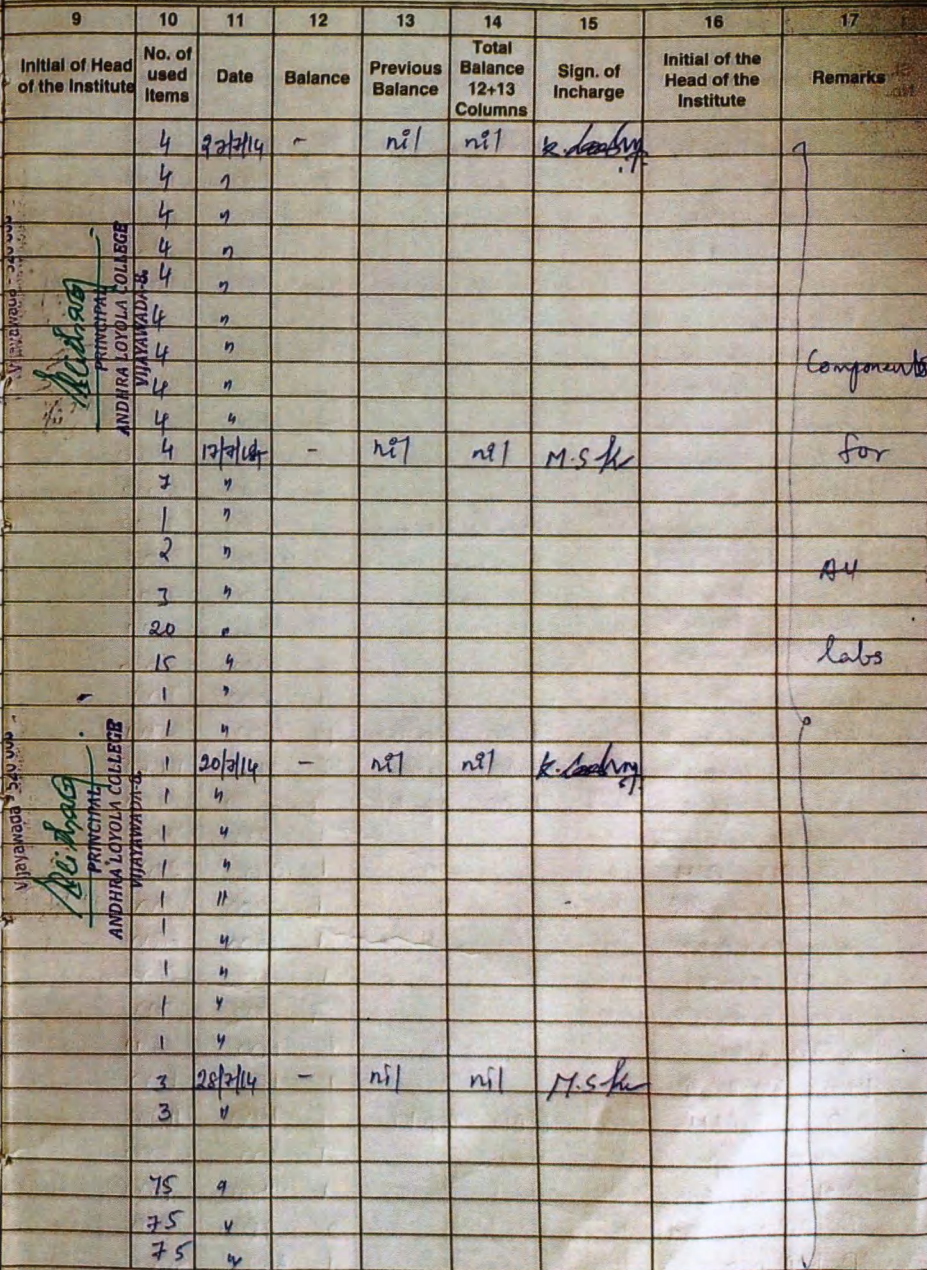 9 10 11 12 13 14 15 16 17
Initial of Head of the Institute No. of used Items Date Balance Previous Balance Total Balance 12+13 Columns Sign. of Incharge Initial of the Head of the Institute Remarks
4 27/7/14 - nil nil
4 "
4 "
4 "
4 "
4 "
4 "
4 "
4 "
4 17/7/14 - nil nil M.S
7 "
1 "
2 "
3 "
20 "
15 "
1 "
1 "
1 20/7/14 - nil nil
1 "
1 "
1 "
1 "
1 "
1 "
1 "
1 "
3 28/7/14 - nil nil M.S
3 "
75 "
75 "
75 "
Components
for
A4
labs
PRINCIPAL
ANDHRA LOYOLA COLLEGE
VIJAYAWADA-8.
Vijayawada - 520 008
PRINCIPAL
ANDHRA LOYOLA COLLEGE
VIJAYAWADA-8.